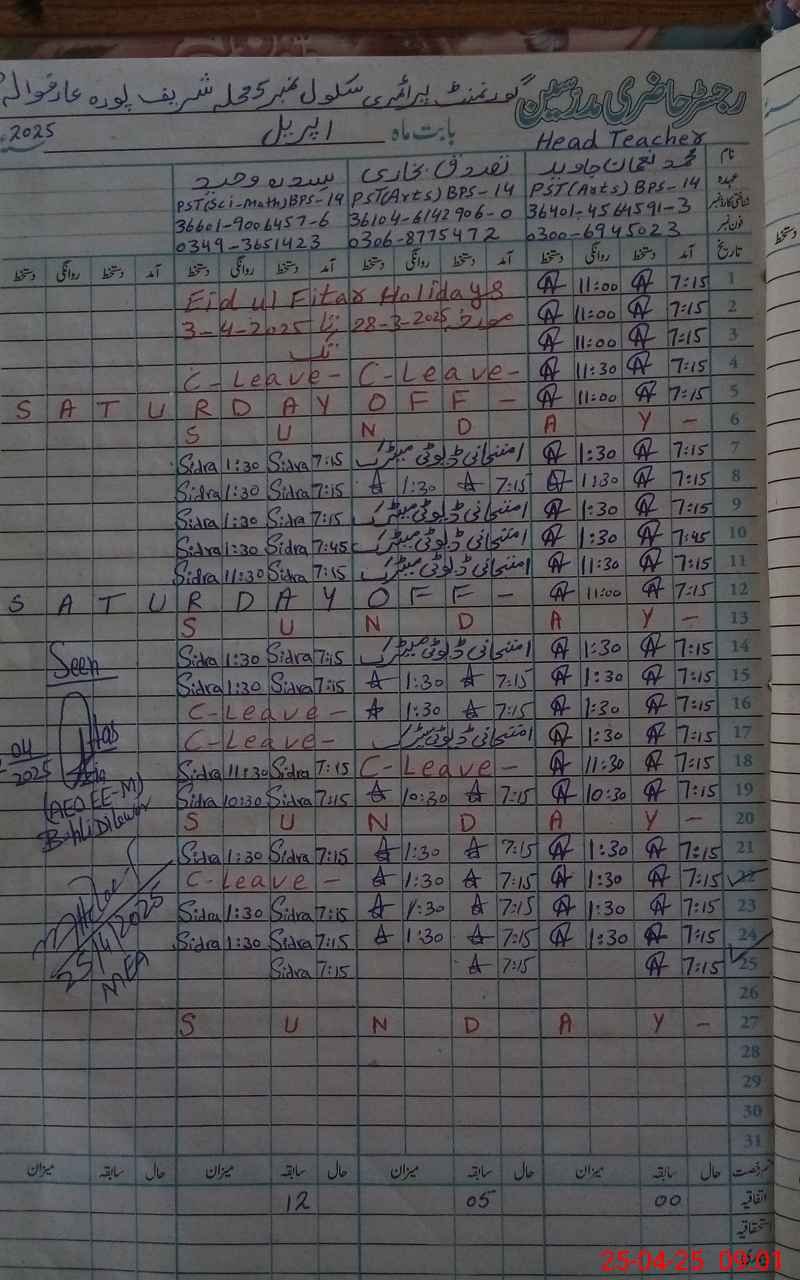 رجسٹر حاضری مدرسین گورنمنٹ پرائمری سکول نمبر 5 محلہ شریف پورہ عارفوالہ
بابت ماہ اپریل 2025
Head Teacher
نام محمد نعمان جاوید تصدق بخاری سیدہ وحید
عہدہ PST(Arts) BPS-14 PST(Arts) BPS-14 PST(Sci-Math) BPS-14
شناختی کارڈ نمبر 36401-4564591-3 36104-6142906-0 36601-9006457-6
فون نمبر 0300-6945023 0306-8775472 0349-3651423
تاریخ آمد دستخط روانگی دستخط آمد دستخط روانگی دستخط آمد دستخط روانگی دستخط آمد دستخط روانگی دستخط
1 7:15 11:00 Eid ul Fitar Holidays
2 7:15 11:00 مورخہ 28-3-2025 تا 3-4-2025
3 7:15 11:00 تک
4 7:15 11:30 C-Leave- C-Leave-
5 7:15 11:00 SATURDAY OFF -
6 SUNDAY -
7 7:15 1:30 امتحانی ڈیوٹی میٹرک 7:15 Sidra 1:30 Sidra
8 7:15 1:30 7:15 1:30 7:15 Sidra 1:30 Sidra
9 7:15 1:30 امتحانی ڈیوٹی میٹرک 7:15 Sidra 1:30 Sidra
10 7:45 1:30 امتحانی ڈیوٹی میٹرک 7:45 Sidra 1:30 Sidra
11 7:15 11:30 امتحانی ڈیوٹی میٹرک 7:15 Sidra 11:30 Sidra
12 7:15 11:00 SATURDAY OFF -
13 SUNDAY -
14 7:15 1:30 امتحانی ڈیوٹی میٹرک 7:15 Sidra 1:30 Sidra
15 7:15 1:30 7:15 1:30 7:15 Sidra 1:30 Sidra
16 7:15 1:30 7:15 1:30 C-Leave-
17 7:15 1:30 امتحانی ڈیوٹی میٹرک C-Leave-
18 7:15 11:30 C-Leave- 7:15 Sidra 11:30 Sidra
19 7:15 10:30 7:15 10:30 7:15 Sidra 10:30 Sidra
20 SUNDAY -
21 7:15 1:30 7:15 1:30 7:15 Sidra 1:30 Sidra
22 7:15 1:30 7:15 1:30 C-Leave -
23 7:15 1:30 7:15 1:30 7:15 Sidra 1:30 Sidra
24 7:15 1:30 7:15 1:30 7:15 Sidra 1:30 Sidra
25 7:15 7:15 7:15 Sidra
26
27 SUNDAY -
28
29
30
31
Seen
04
2025
(AEO EE-M)
25/4/2025
MEA
حال سابقہ میزان حال سابقہ میزان حال سابقہ میزان حال سابقہ میزان
اتفاقیہ 00 05 12
استحقاقیہ
دستخط
25-04-25 09:01